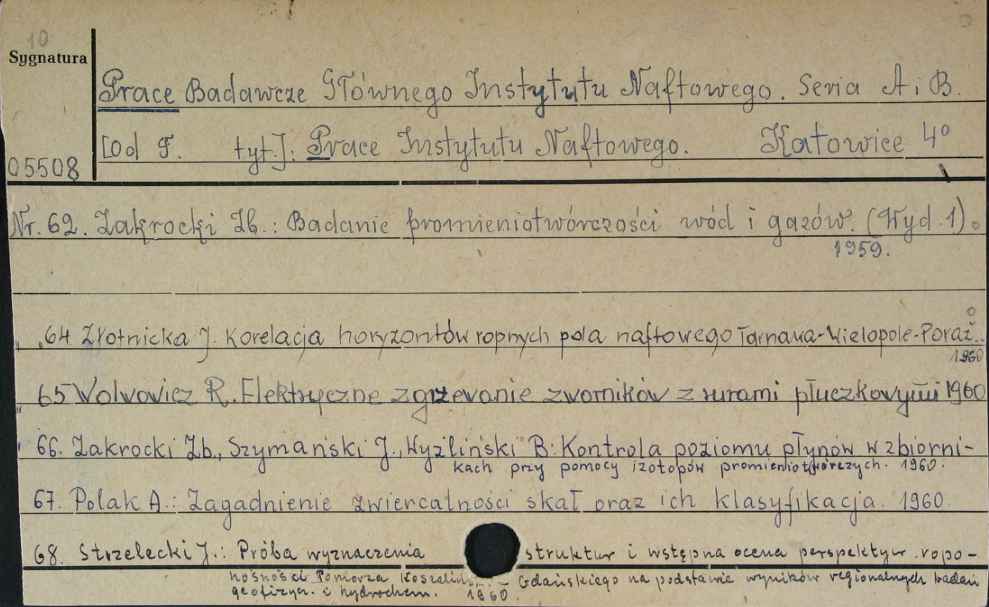 10
Sygnatura
Prace Badawcze Głównego Instytutu Naftowego. Seria A i B.
[Od T. tyt.]: Prace Instytutu Naftowego. Katowice 4°
05508
Nr. 62. Zakrocki Zb.: Badanie promieniotwórczości wód i gazów. (Wyd. 1).
1959.
„ 64 Złotnicka J. Korelacja horyzontów ropnych pola naftowego Tarnawa-Wielopole-Poraż.
1960
„ 65 Wolwowicz R. Elektryczne zgrzewanie zworników z rurami płuczkowymi 1960
„ 66. Zakrocki Zb., Szymański J., Wyżliński B: Kontrola poziomu płynów w zbiorni-
kach przy pomocy izotopów promieniotwórczych. 1960.
67. Polak A.: Zagadnienie zwiercalności skał oraz ich klasyfikacja. 1960.
68. Strzelecki J.: Próba wyznaczenia struktur i wstępna ocena perspektyw ropo-
nośności Pomorza - Gdańskiego na podstawie wyników regionalnych badań
geofizycz. i hydrochem. 1960.